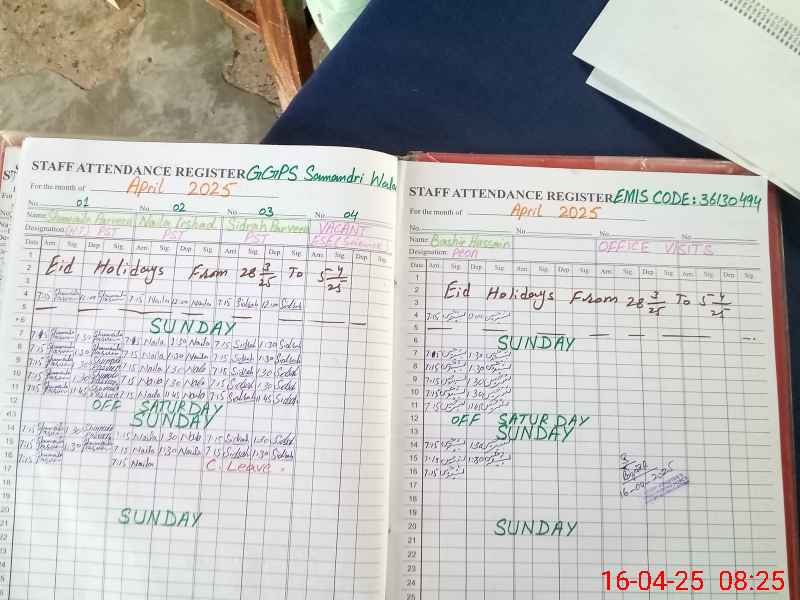 STAFF ATTENDANCE REGISTER GGPS Samandri Wala
For the month of April 2025
No. 01 No. 02 No. 03 No. 04
Name Shamaila Parveen Naila Irshad Sidrah Parveen VACANT
Designation: (HT) PST PST PST ESE (Science)
Date Arri Sig. Dep Sig. Arri Sig. Dep Sig. Arri Sig. Dep Sig. Arri Sig. Dep Sig.
1
2 Eid Holidays From 28 3/25 To 5-4/25
3
4 7:15 12:00 7:15 Naila 12:00 Naila 7:15 Sidrah 12:00 Sidrah
5
6 SUNDAY
7 7:15 1:30 7:15 Naila 1:30 Naila 7:15 Sidrah 1:30 Sidrah
8 7:15 1:30 7:15 Naila 1:30 Naila 7:15 Sidrah 1:30 Sidrah
9 7:15 1:30 7:15 Naila 1:30 Naila 7:15 Sidrah 1:30 Sidrah
10 7:15 1:30 7:15 Naila 1:30 Naila 7:15 Sidrah 1:30 Sidrah
11 7:15 11:45 7:15 Naila 11:45 Naila 7:15 Sidrah 11:45 Sidrah
12 OFF SATURDAY
13 SUNDAY
14 7:15 1:30 7:15 Naila 1:30 Naila 7:15 Sidrah 1:30 Sidrah
15 7:15 1:30 7:15 Naila 1:30 Naila 7:15 Sidrah 1:30 Sidrah
16 7:15 7:15 Naila C. Leave
17
18
19
20 SUNDAY
21
22
23
24
STAFF ATTENDANCE REGISTER EMIS CODE: 36130494
For the month of April 2025
No. No. No. No.
Name Bashir Hussain OFFICE VISITS
Designation: Peon
Date Arri Sig. Dep Sig. Arri Sig. Dep Sig. Arri Sig. Dep Sig. Arri Sig. Dep Sig.
1
2
3 Eid Holidays From 28 3/25 To 5-4/25
4 7:15
5
6 SUNDAY
7 7:15 1:30
8 7:15 1:30
9 7:15 1:30
10 7:15 1:30
11 7:15
12 OFF SATURDAY
13 SUNDAY
14 7:15 1:30
15 7:15 1:30
16 7:15
16-04-2025
17
18
19
20 SUNDAY
21
22
23
24
25
16-04-25 08:25